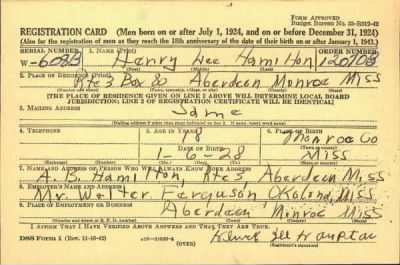 FORM APPROVED
Budget Bureau No. 33-R312-42
REGISTRATION CARD (Men born on or after July 1, 1924, and on or before December 31, 1924)
(Also for the registration of men as they reach the 18th anniversary of the date of their birth on or after January 1, 1943.)
SERIAL NUMBER 1. NAME (Print) ORDER NUMBER
W-608B Henry Lee Hamilton 12070B
2. PLACE OF RESIDENCE (Print)
Rte 5 Box 80 Aberdeen Monroe Miss
[THE PLACE OF RESIDENCE GIVEN ON LINE 2 ABOVE WILL DETERMINE LOCAL BOARD
JURISDICTION; LINE 2 OF REGISTRATION CERTIFICATE WILL BE IDENTICAL]
3. MAILING ADDRESS
Same
4. TELEPHONE 5. AGE IN YEARS 6. PLACE OF BIRTH
18 Monroe Co
DATE OF BIRTH
1-6-28 Miss
7. NAME AND ADDRESS OF PERSON WHO WILL ALWAYS KNOW YOUR ADDRESS
A. B. Hamilton, Rte 5 Aberdeen Miss
8. EMPLOYER'S NAME AND ADDRESS
Mr. Walter Ferguson, Okolona, Miss
9. PLACE OF EMPLOYMENT OR BUSINESS
Aberdeen Monroe Miss
I AFFIRM THAT I HAVE VERIFIED ABOVE ANSWERS AND THAT THEY ARE TRUE.
DSS Form 1 (Rev. 11-16-42) (OVER)
(Registrant's signature)